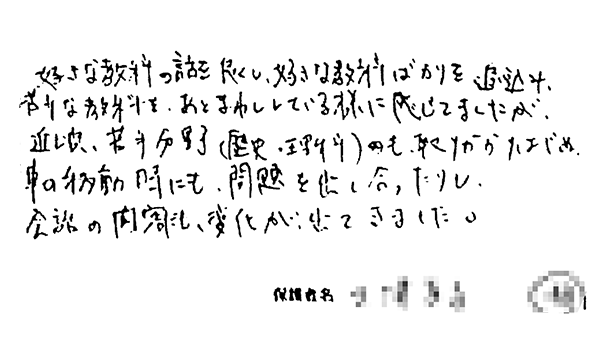 好きな教科の話を良くし、好きな教科ばかりを追込み、
苦手な教科を、あとまわしにしている様に感じてましたが、
近頃、苦手分野(歴史・理科)のも、取りかかりはじめ、
車の移動時にも、問題を出し合ったりし、
会話の内容も、変化が出てきました。
保護者名